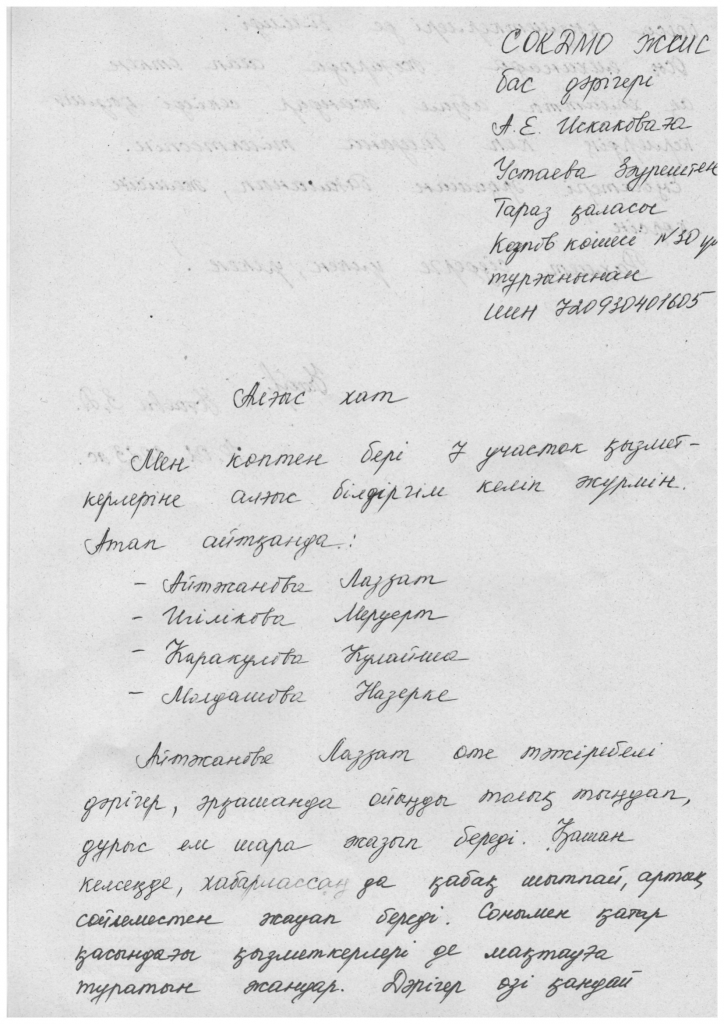 СОКДМО ЖШС
бас дәрігері
А.Е. Искаковаға
Устаева Зәурештен
Тараз қаласы
көшесі №30 үй
тұрғанынан
ИИН 720930401605
Алғыс хат
Мен көптен бері 7 участок қызмет-
керлеріне алғыс білдіргім келіп жүрмін.
Атап айтқанда:
- Айтжанова Лаззат
- Игілікова Меруерт
- Каракулова Кулайша
- Молдашова Назерке
Айтжанова Лаззат өте тәжіребелі
дәрігер, әрқашанда ойыңды толық тыңдап,
дұрыс ем шара жазып береді. Қашан
келсеңде, хабарлассаң да қабақ шытпай, артық
сөйлеместен жауап береді. Сонымен қатар
қасындағы қызметкерлері де мақтауға
тұратын жандар. Дәрігер өзі қандай